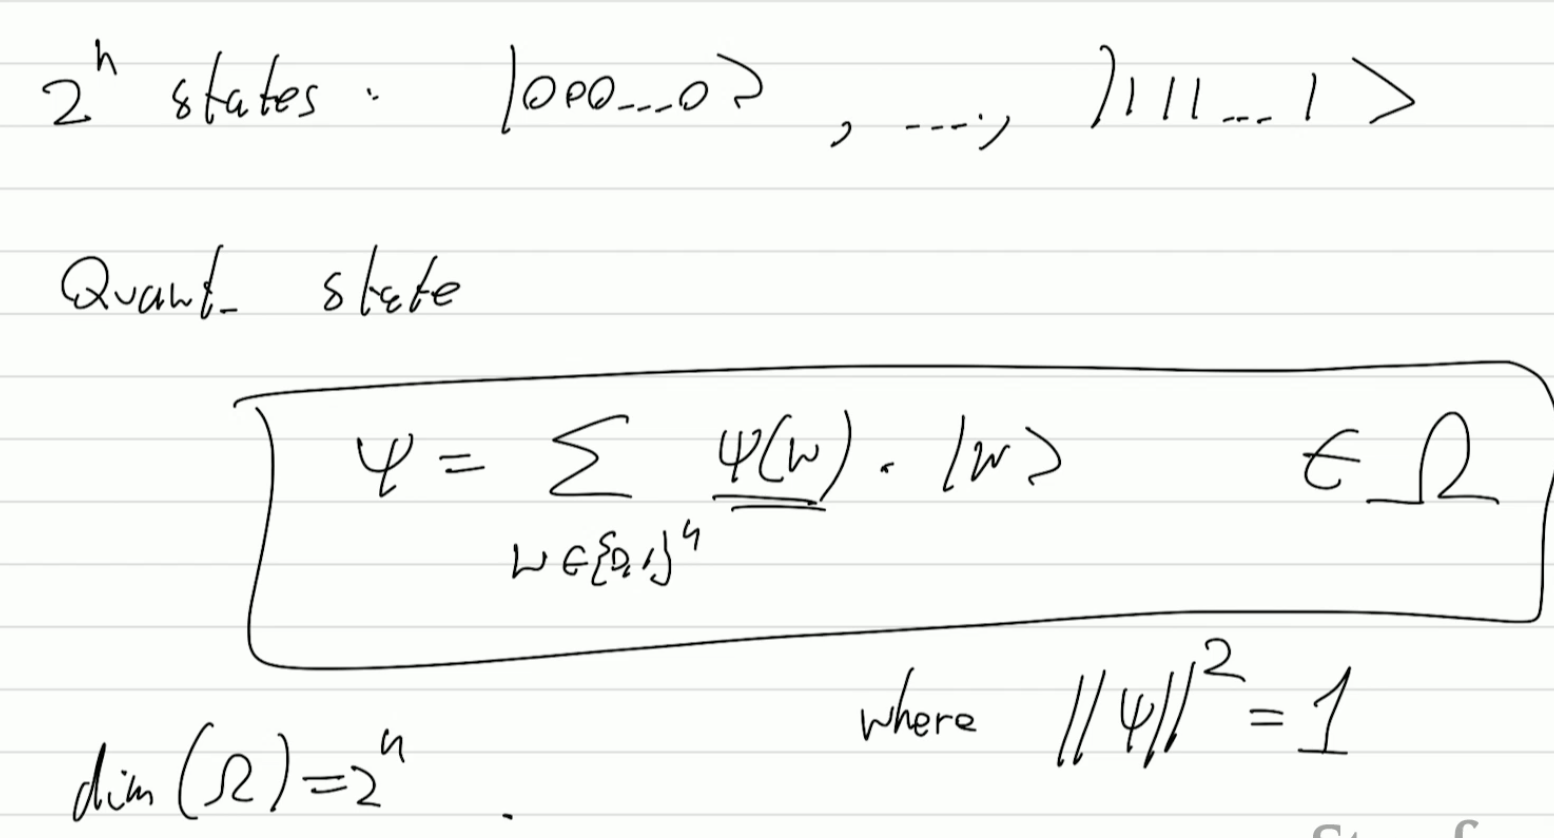 2^n states : |000...0⟩, ...., |111...1⟩
Quant. state
Ψ = Σ Ψ(w) · |w⟩ ∈ Ω
w∈{0,1}^n
where ||Ψ||² = 1
dim(Ω)=2^n .